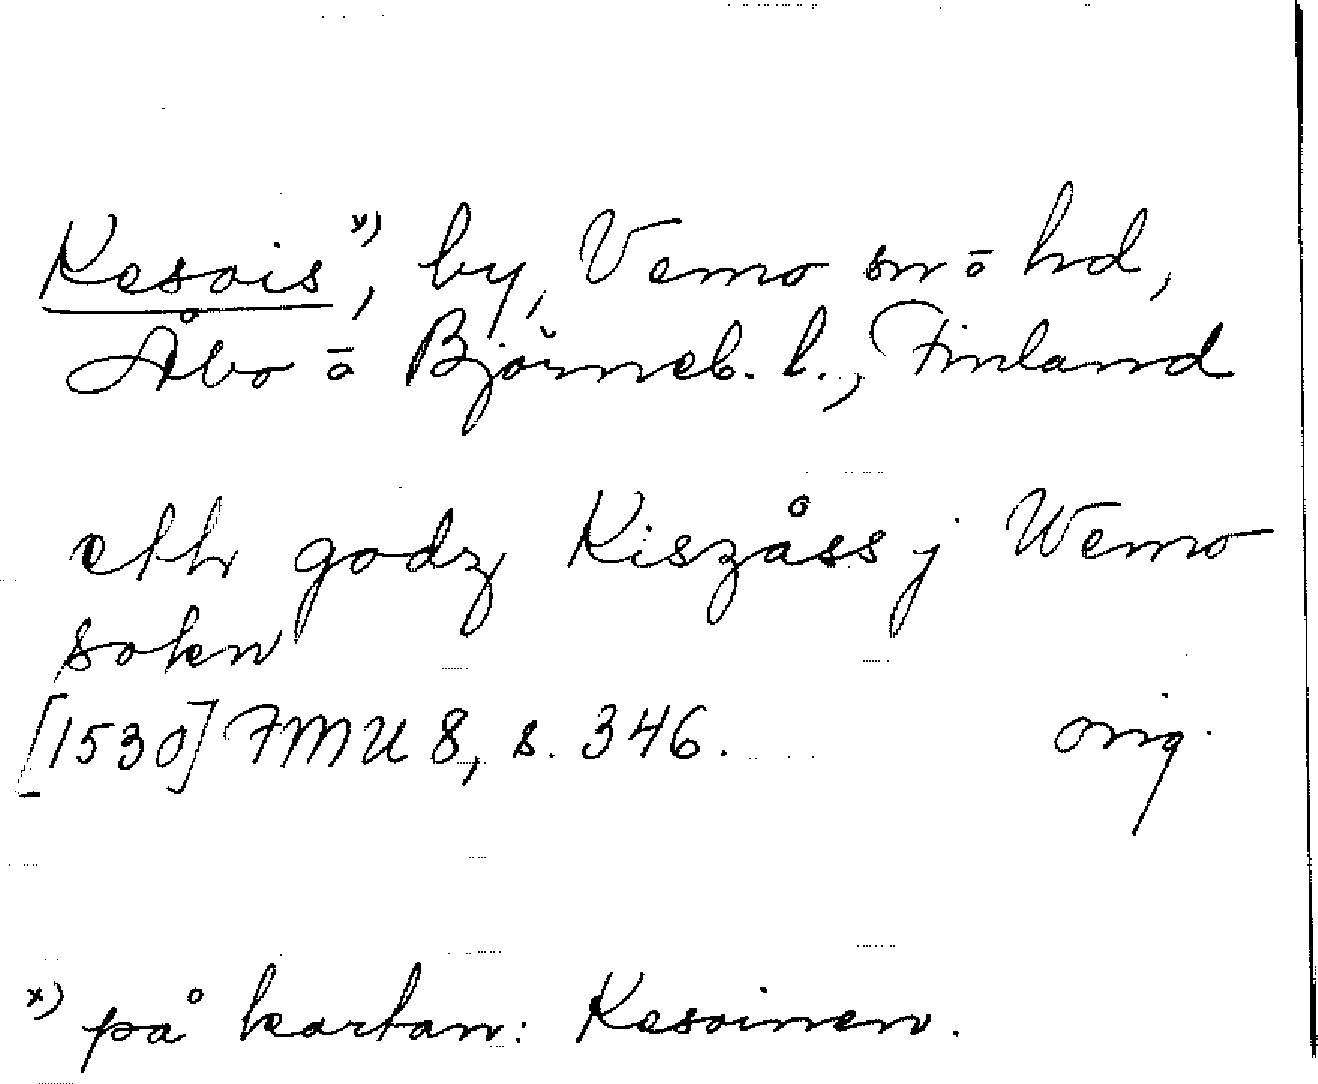 Kesois x), by, Vemo sn o hd,
Åbo o Björneb. l., Finland
etth godz Kiszåss j Wemo
sokn
[1530] FMU 8, s. 346. orig.
x) på kartan: Kesoinen.